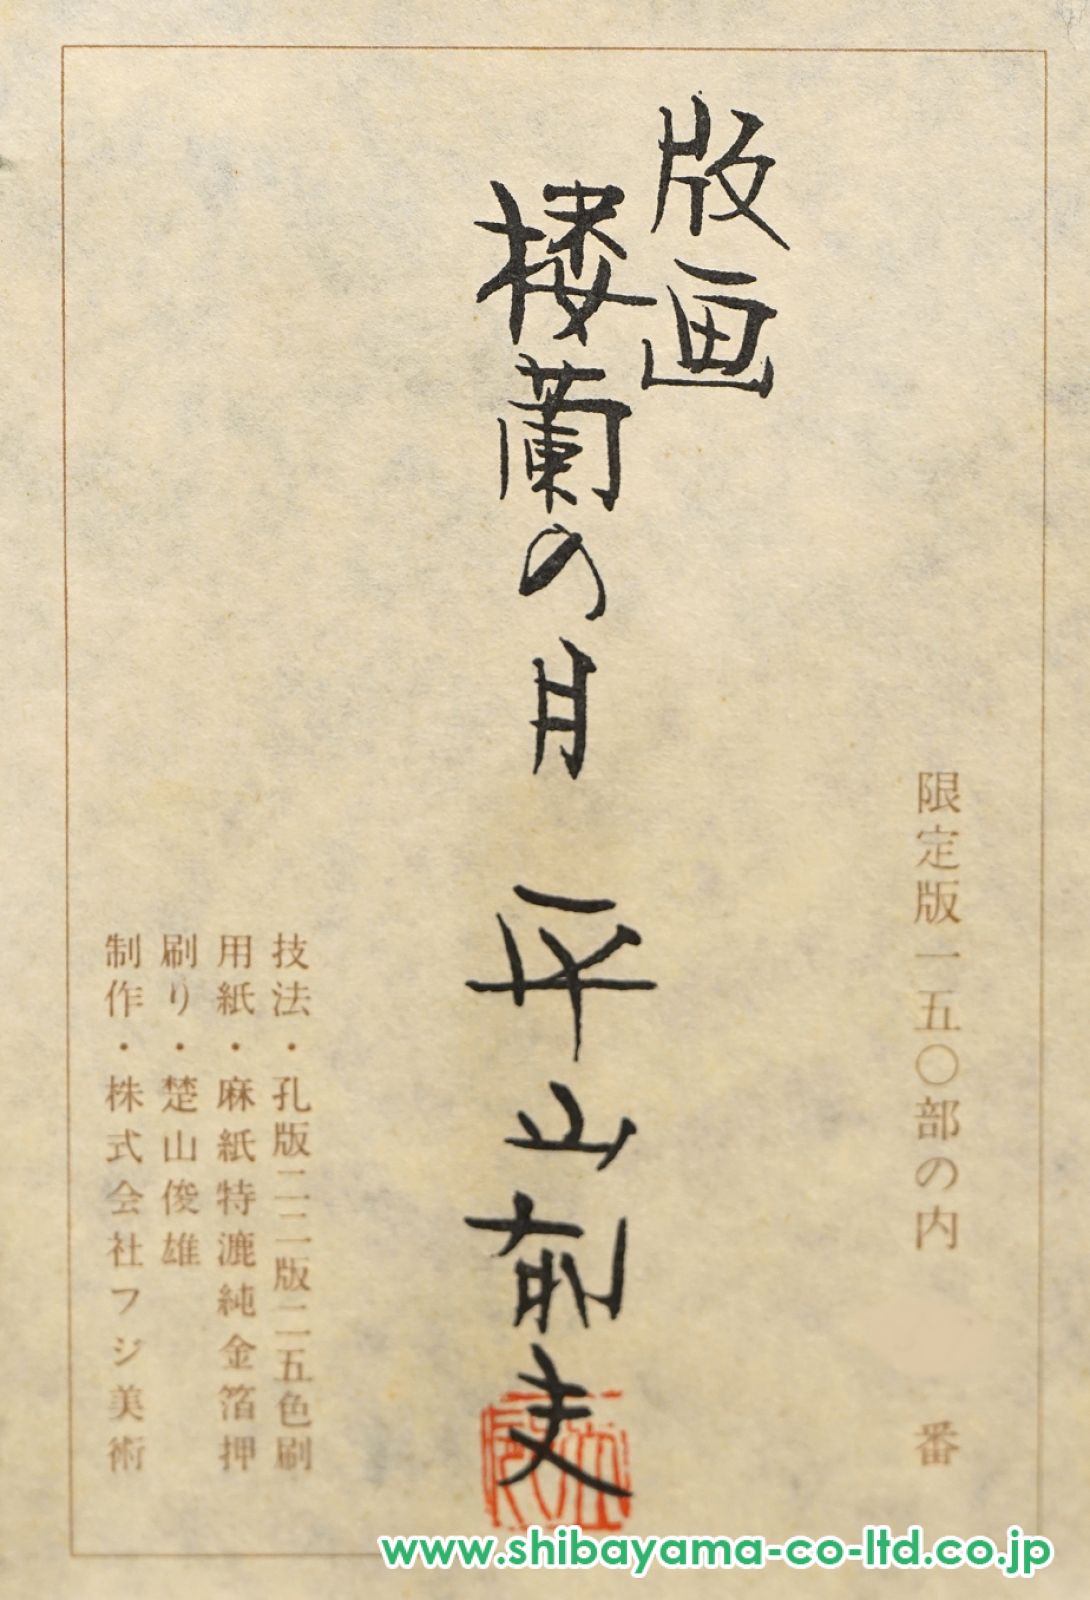 限定版一五〇部の内 番
版画
楼蘭の月 平山郁夫
技法・孔版二二版二五色刷
用紙・麻紙特漉純金箔押
刷り・楚山俊雄
制作・株式会社フジ美術
www.shibayama-co-ltd.co.jp